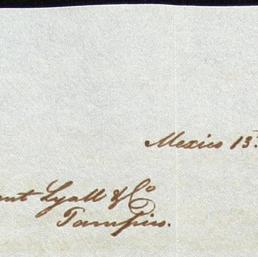 Mexico 13
Lyall & Co
Tampico.